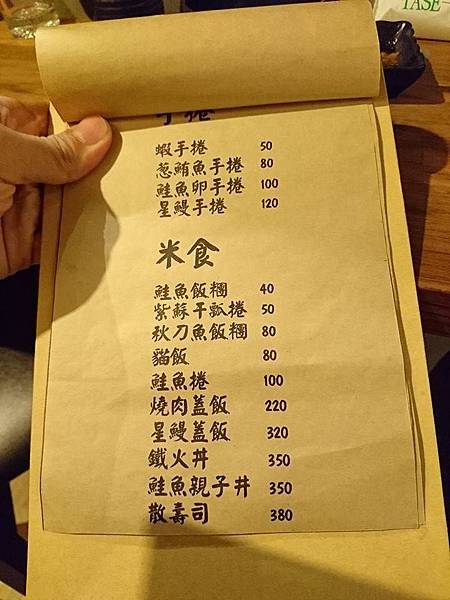 TASE
手捲
蝦手捲 50
葱鮪魚手捲 80
鮭魚卵手捲 100
星鰻手捲 120
米食
鮭魚飯糰 40
紫蘇干瓢捲 50
秋刀魚飯糰 80
貓飯 80
鮭魚捲 100
燒肉蓋飯 220
星鰻蓋飯 320
鐵火丼 350
鮭魚親子丼 350
散壽司 380